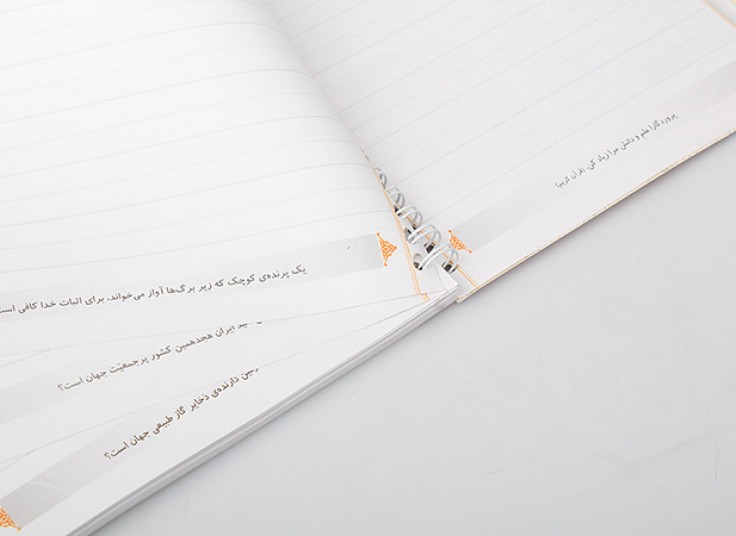 پروردگارا علم و دانش مرا زیاد کن. (قرآن کریم)
یک پرنده‌ی کوچک که زیر برگ‌ها آواز می‌خواند، برای اثبات خدا کافی است
ایران هجدهمین کشور پرجمعیّت جهان است؟
دارنده‌ی ذخایر گاز طبیعی جهان است؟